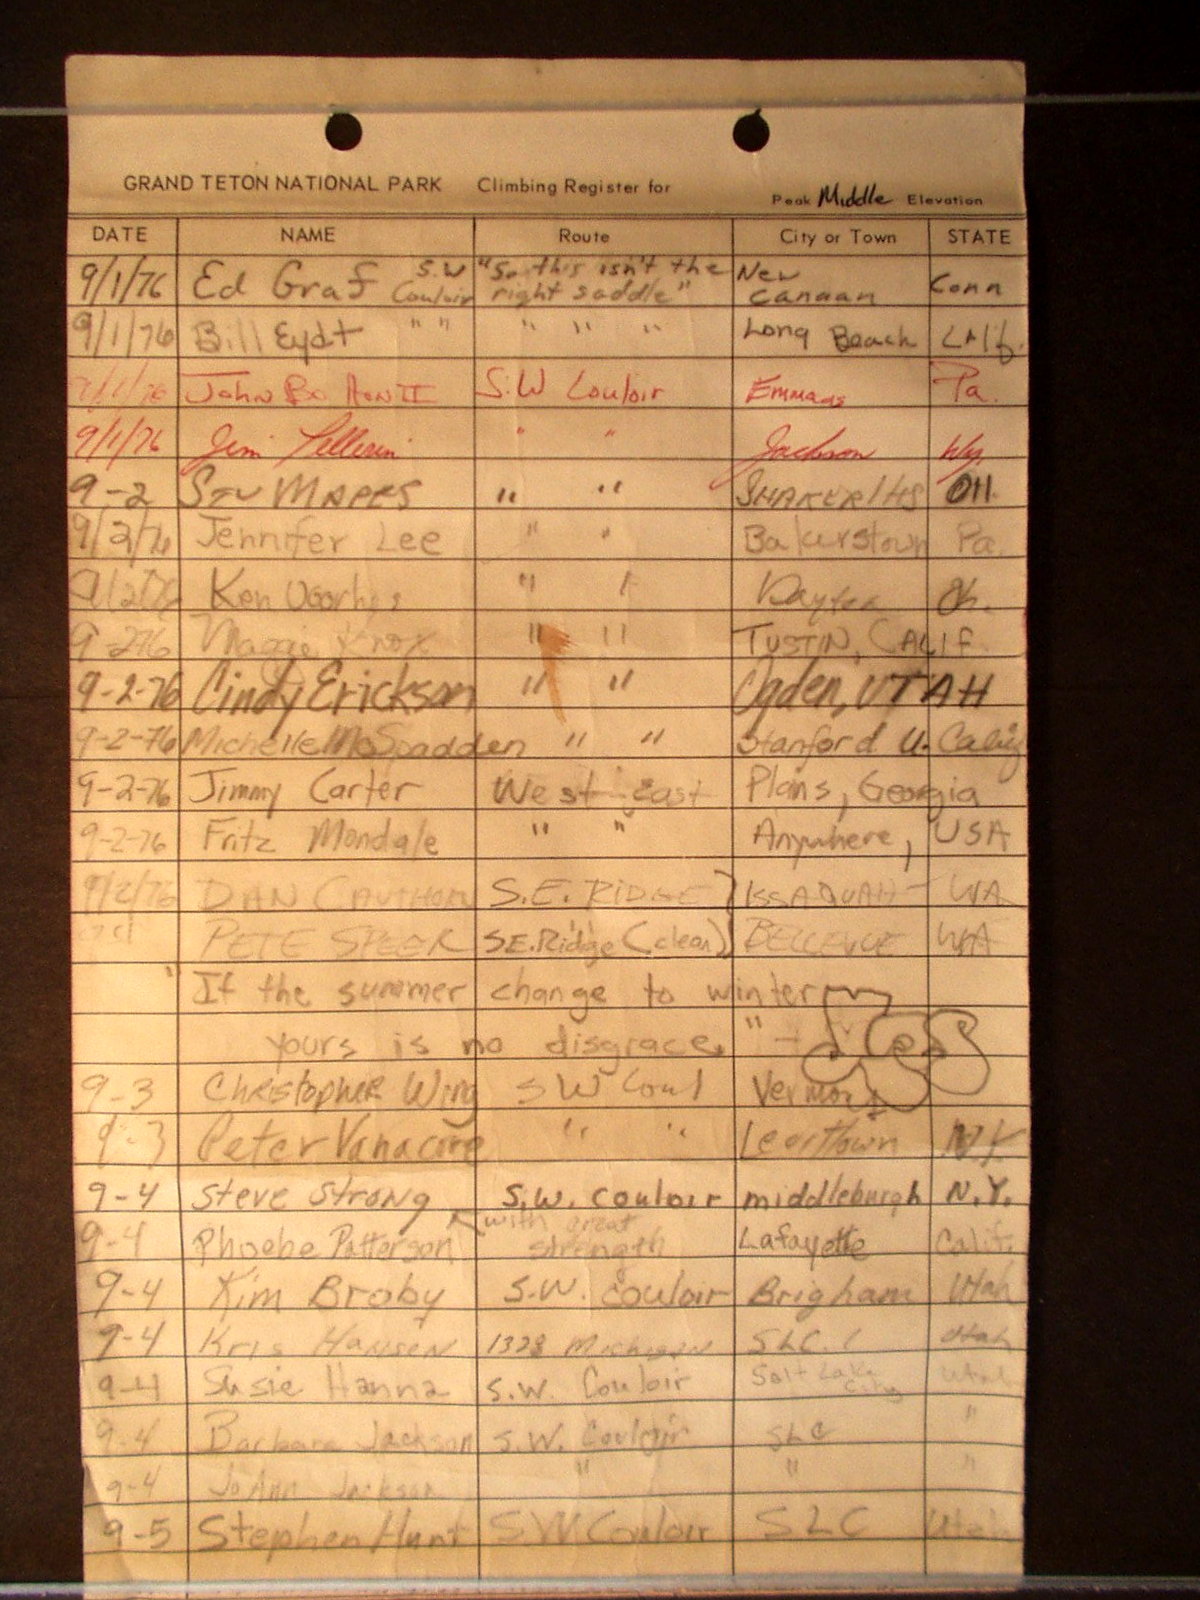 GRAND TETON NATIONAL PARK Climbing Register for Peak Middle Elevation
DATE NAME Route City or Town STATE
9/1/76 Ed Graf S.W Couloir "So this isn't the right saddle" New Canaan Conn
9/1/76 Bill Eydt " " " " " Long Beach Calif.
John S.W Couloir Emmaus Pa.
9/1/76 Jim Pellerin " " Jackson Wy.
9-2 STU MAPES " " SHAKER HTS OH.
9/2/76 Jennifer Lee " " Bakerstown Pa.
9/2/76 Ken Voorhes " " Dayton Oh.
9-2-76 Maggie Knox " " TUSTIN, CALIF.
9-2-76 Cindy Erickson " " Ogden, UTAH
9-2-76 Michelle McSpadden " " Stanford U. Calif
9-2-76 Jimmy Carter West - East Plains, Georgia
9-2-76 Fritz Mondale " " Anywhere, USA
9/2/76 DAN CAUTHORN S.E. RIDGE } ISSAQUAH - WA
PETE SPEER SE.Ridge (clean) BELLEVUE WA
"If the summer change to winter
yours is no disgrace." - Yes
9-3 CHRISTOPHER Wing SW Coul Vermont
9-3 Peter Vanacore " " N.Y
9-4 Steve Strong S.W. Couloir middleburgh N.Y.
9-4 Phoebe Patterson with great strength Lafayette Calif.
9-4 Kim Broby S.W. Couloir Brigham Utah
9-4 Kris Hansen 1328 Michigan SLC. Utah
9-4 Susie Hanna S.W. Couloir Salt Lake City Utah
9-4 Barbara Jackson S.W. Couloir SLC "
9-4 JoAnn Jackson " " "
9-5 Stephen Hunt SW Couloir SLC Utah